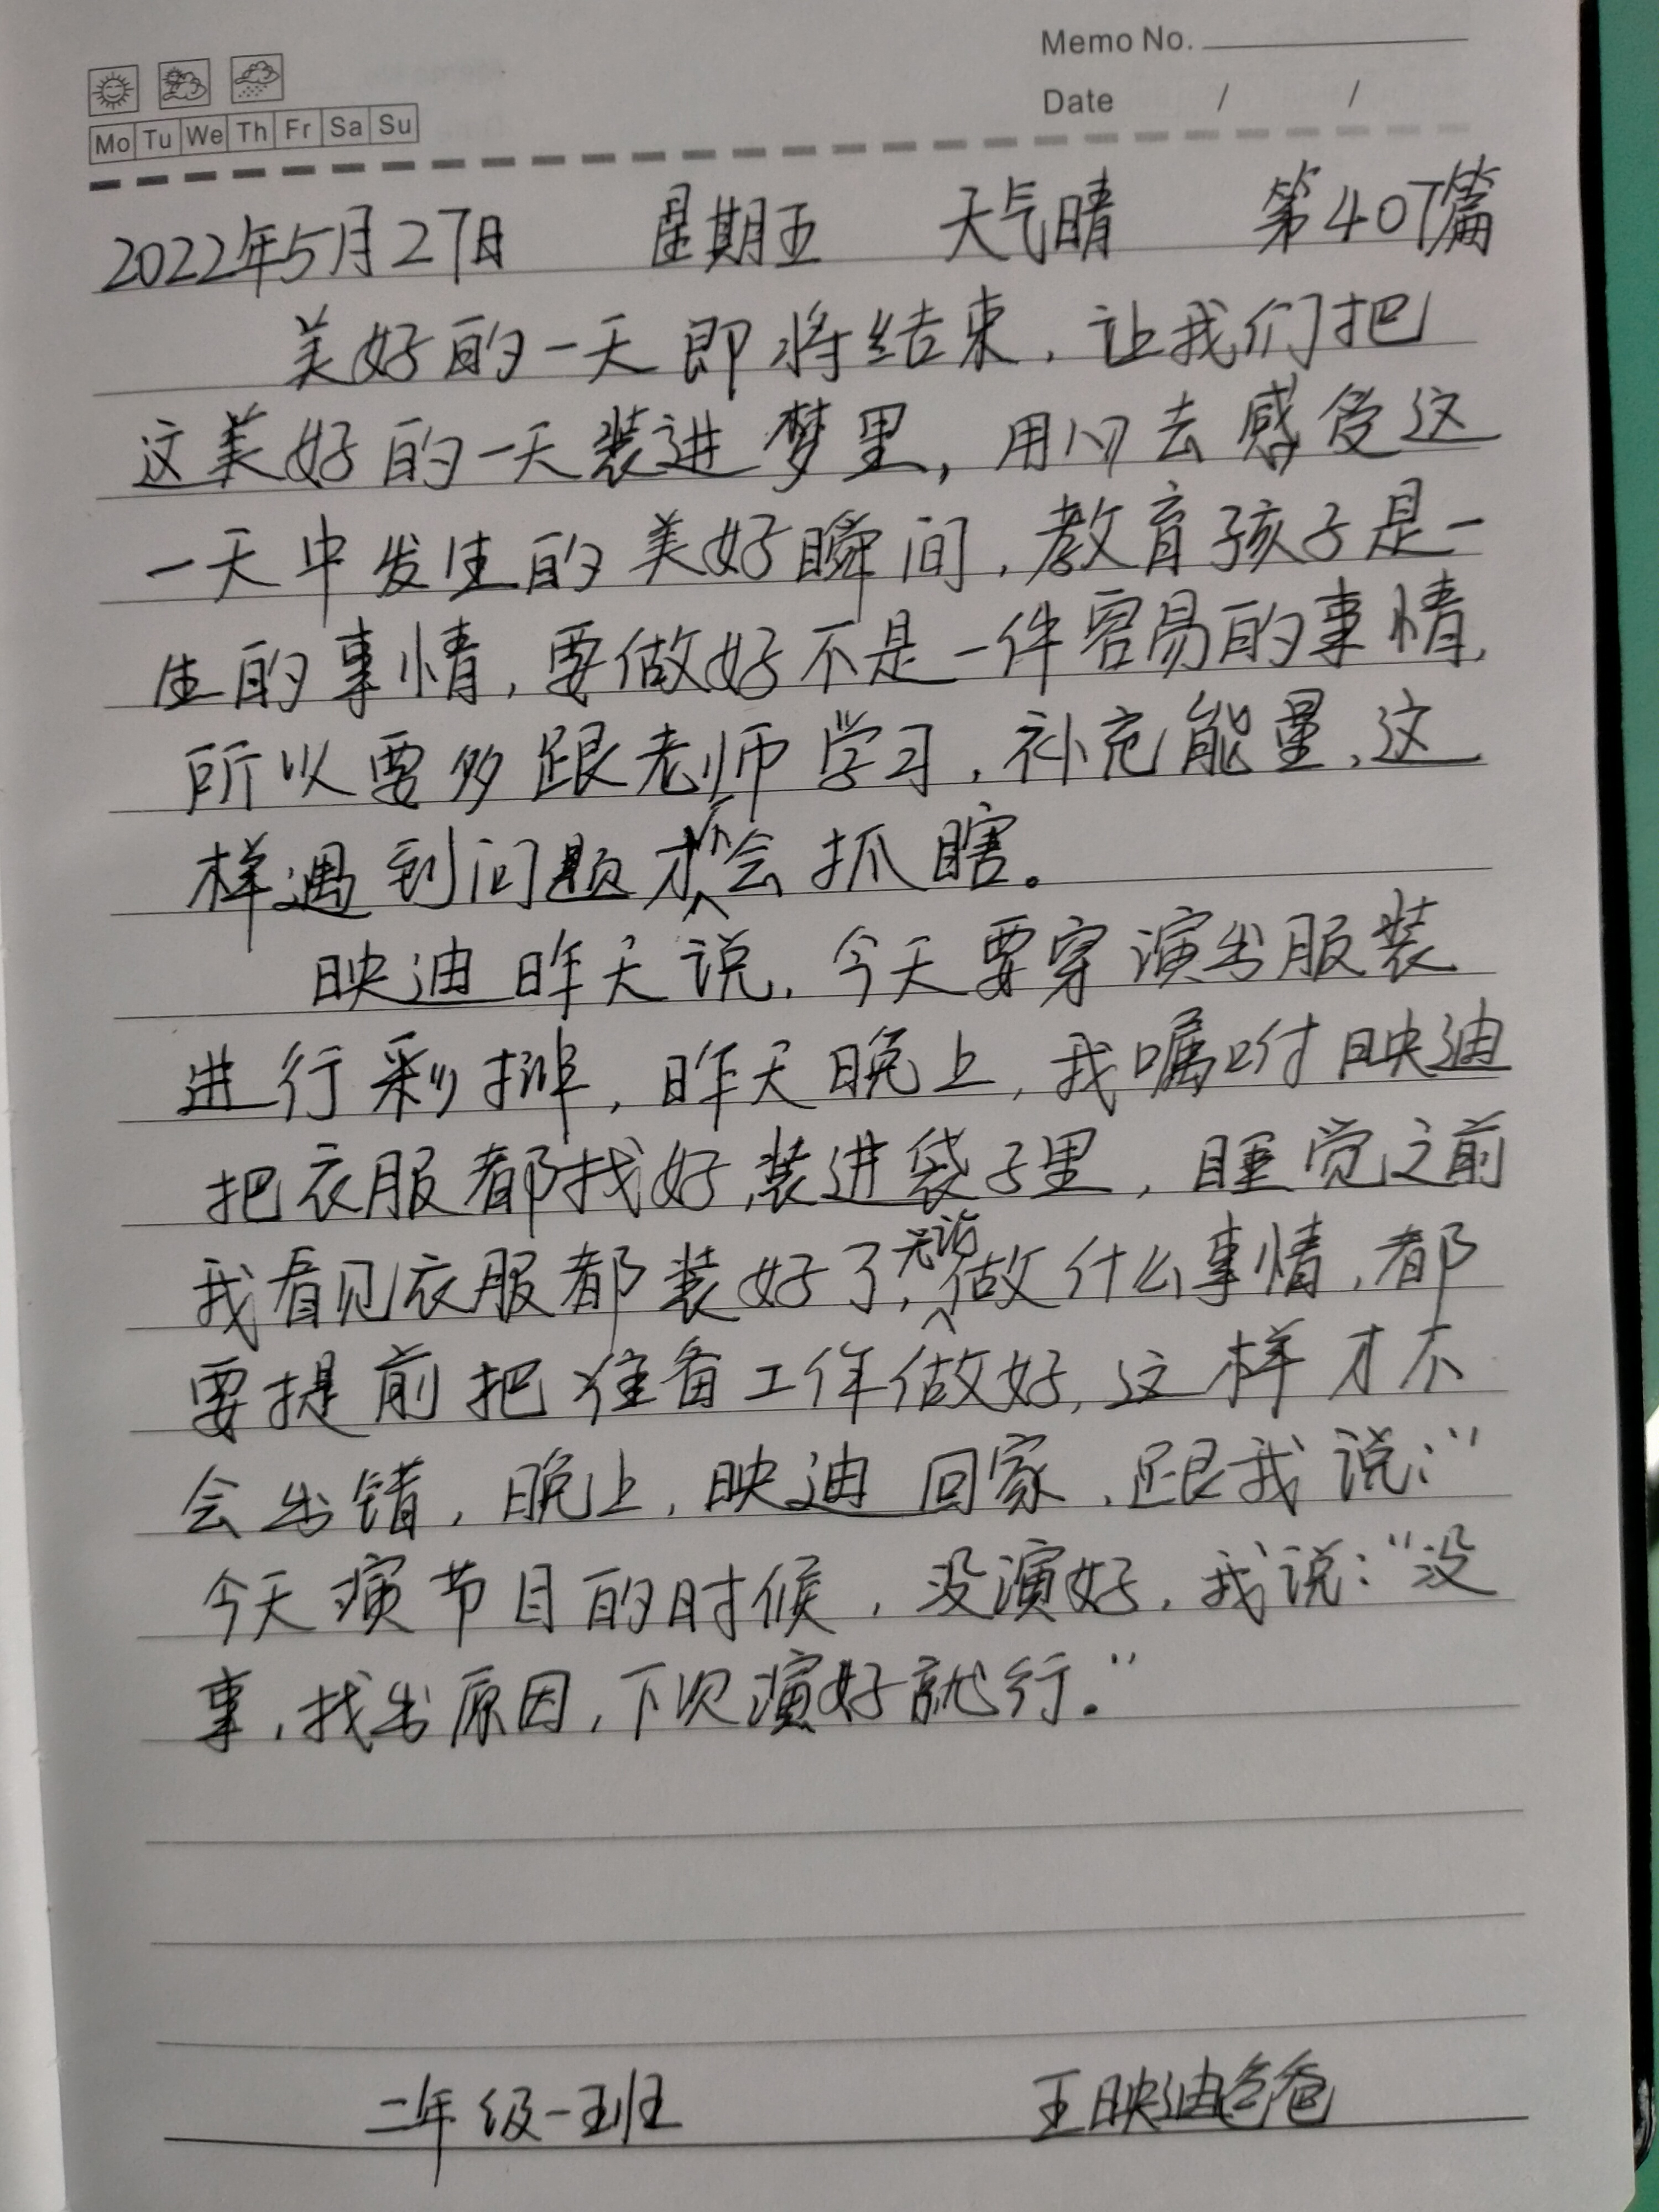 Memo No.
Date / /
Mo Tu We Th Fr Sa Su
2022年5月27日 星期五 天气晴 第407篇
美好的一天即将结束,让我们把
这美好的一天装进梦里,用心去感受这
一天中发生的美好瞬间,教育孩子是一
生的事情,要做好不是一件容易的事情,
所以要多跟老师学习,补充能量,这
样遇到问题才不会抓瞎。
映迪昨天说,今天要穿演出服装
进行彩排,昨天晚上,我嘱咐映迪
把衣服都找好,装进袋子里,睡觉之前
我看见衣服都装好了,无论做什么事情,都
要提前把准备工作做好,这样才不
会出错,晚上,映迪回家,还跟我说:“
今天演节目的时候,没演好,我说:“没
事,找出原因,下次演好就行。”
二年级一班 王映迪爸爸